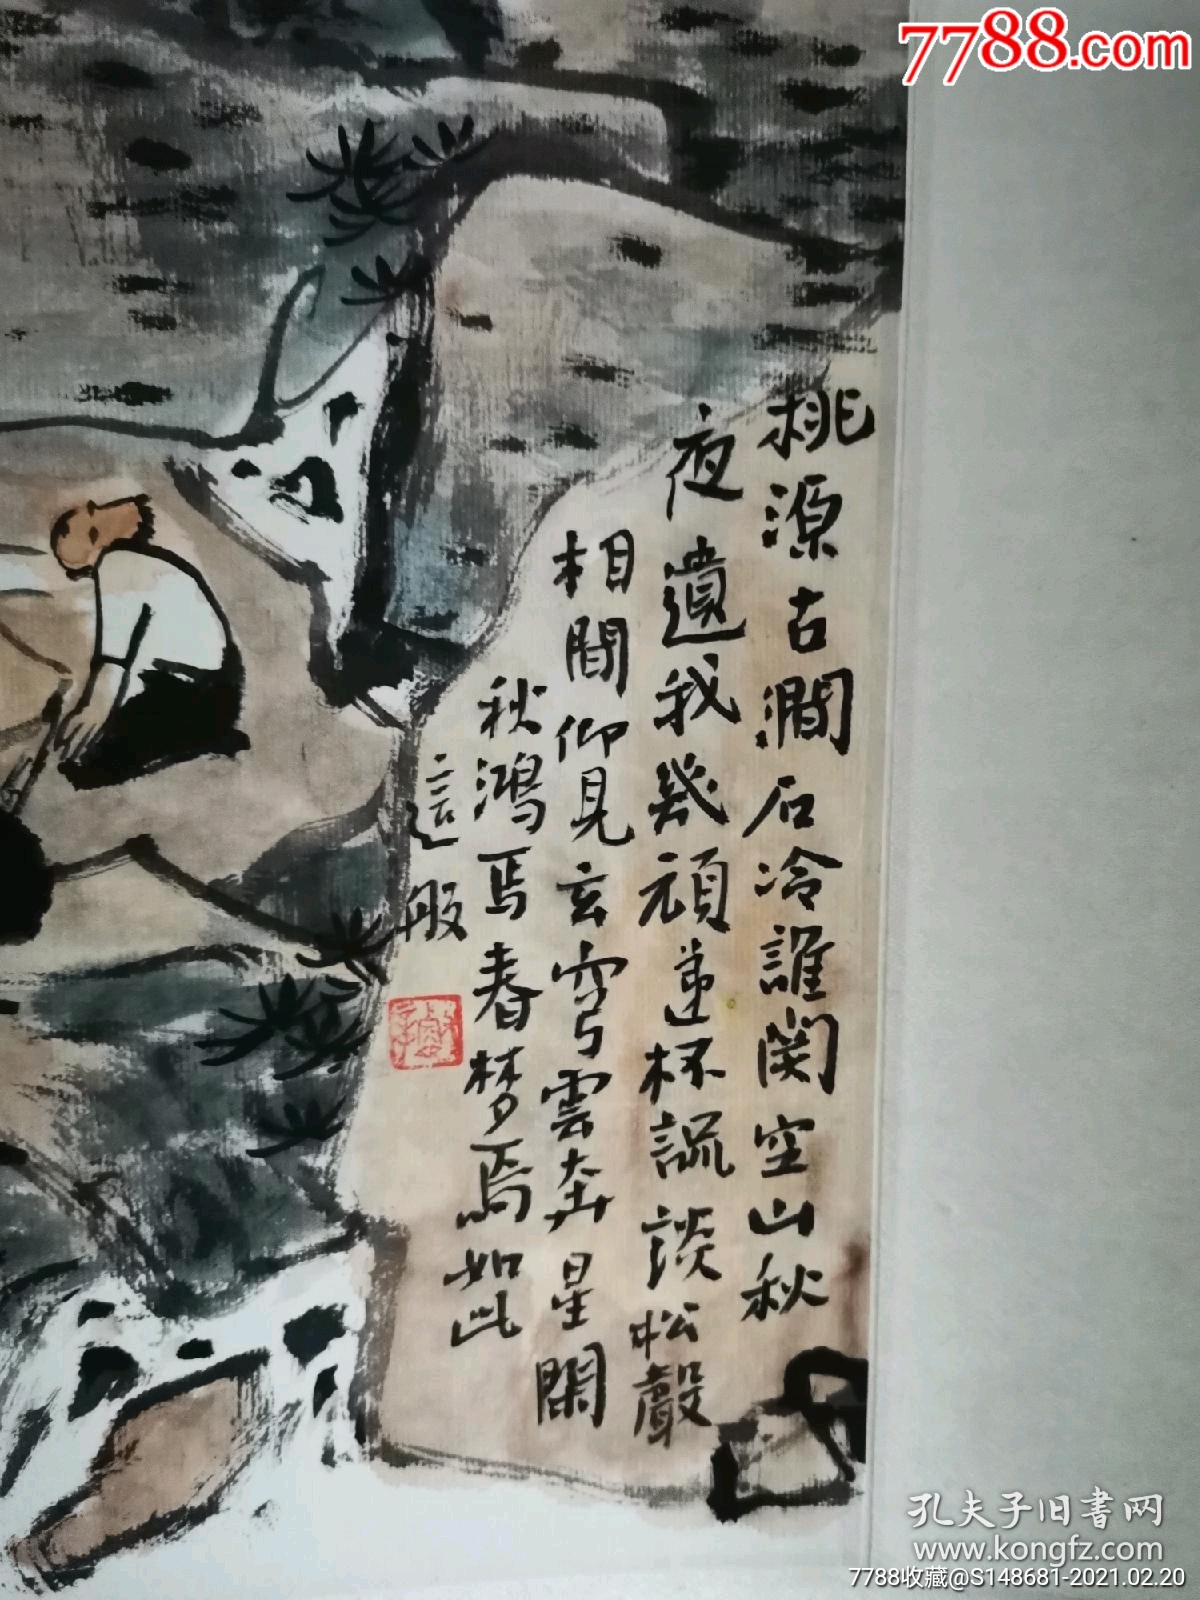 7788.com
桃源古澗石冷誰関空山秋
夜遺我幾頑并杯謊談松聲
相間仰見玄穹雲奔星閑
秋鴻焉春梦焉如此
這般
孔夫子旧书网
www.kongfz.com
7788收藏@S148681-2021.02.20